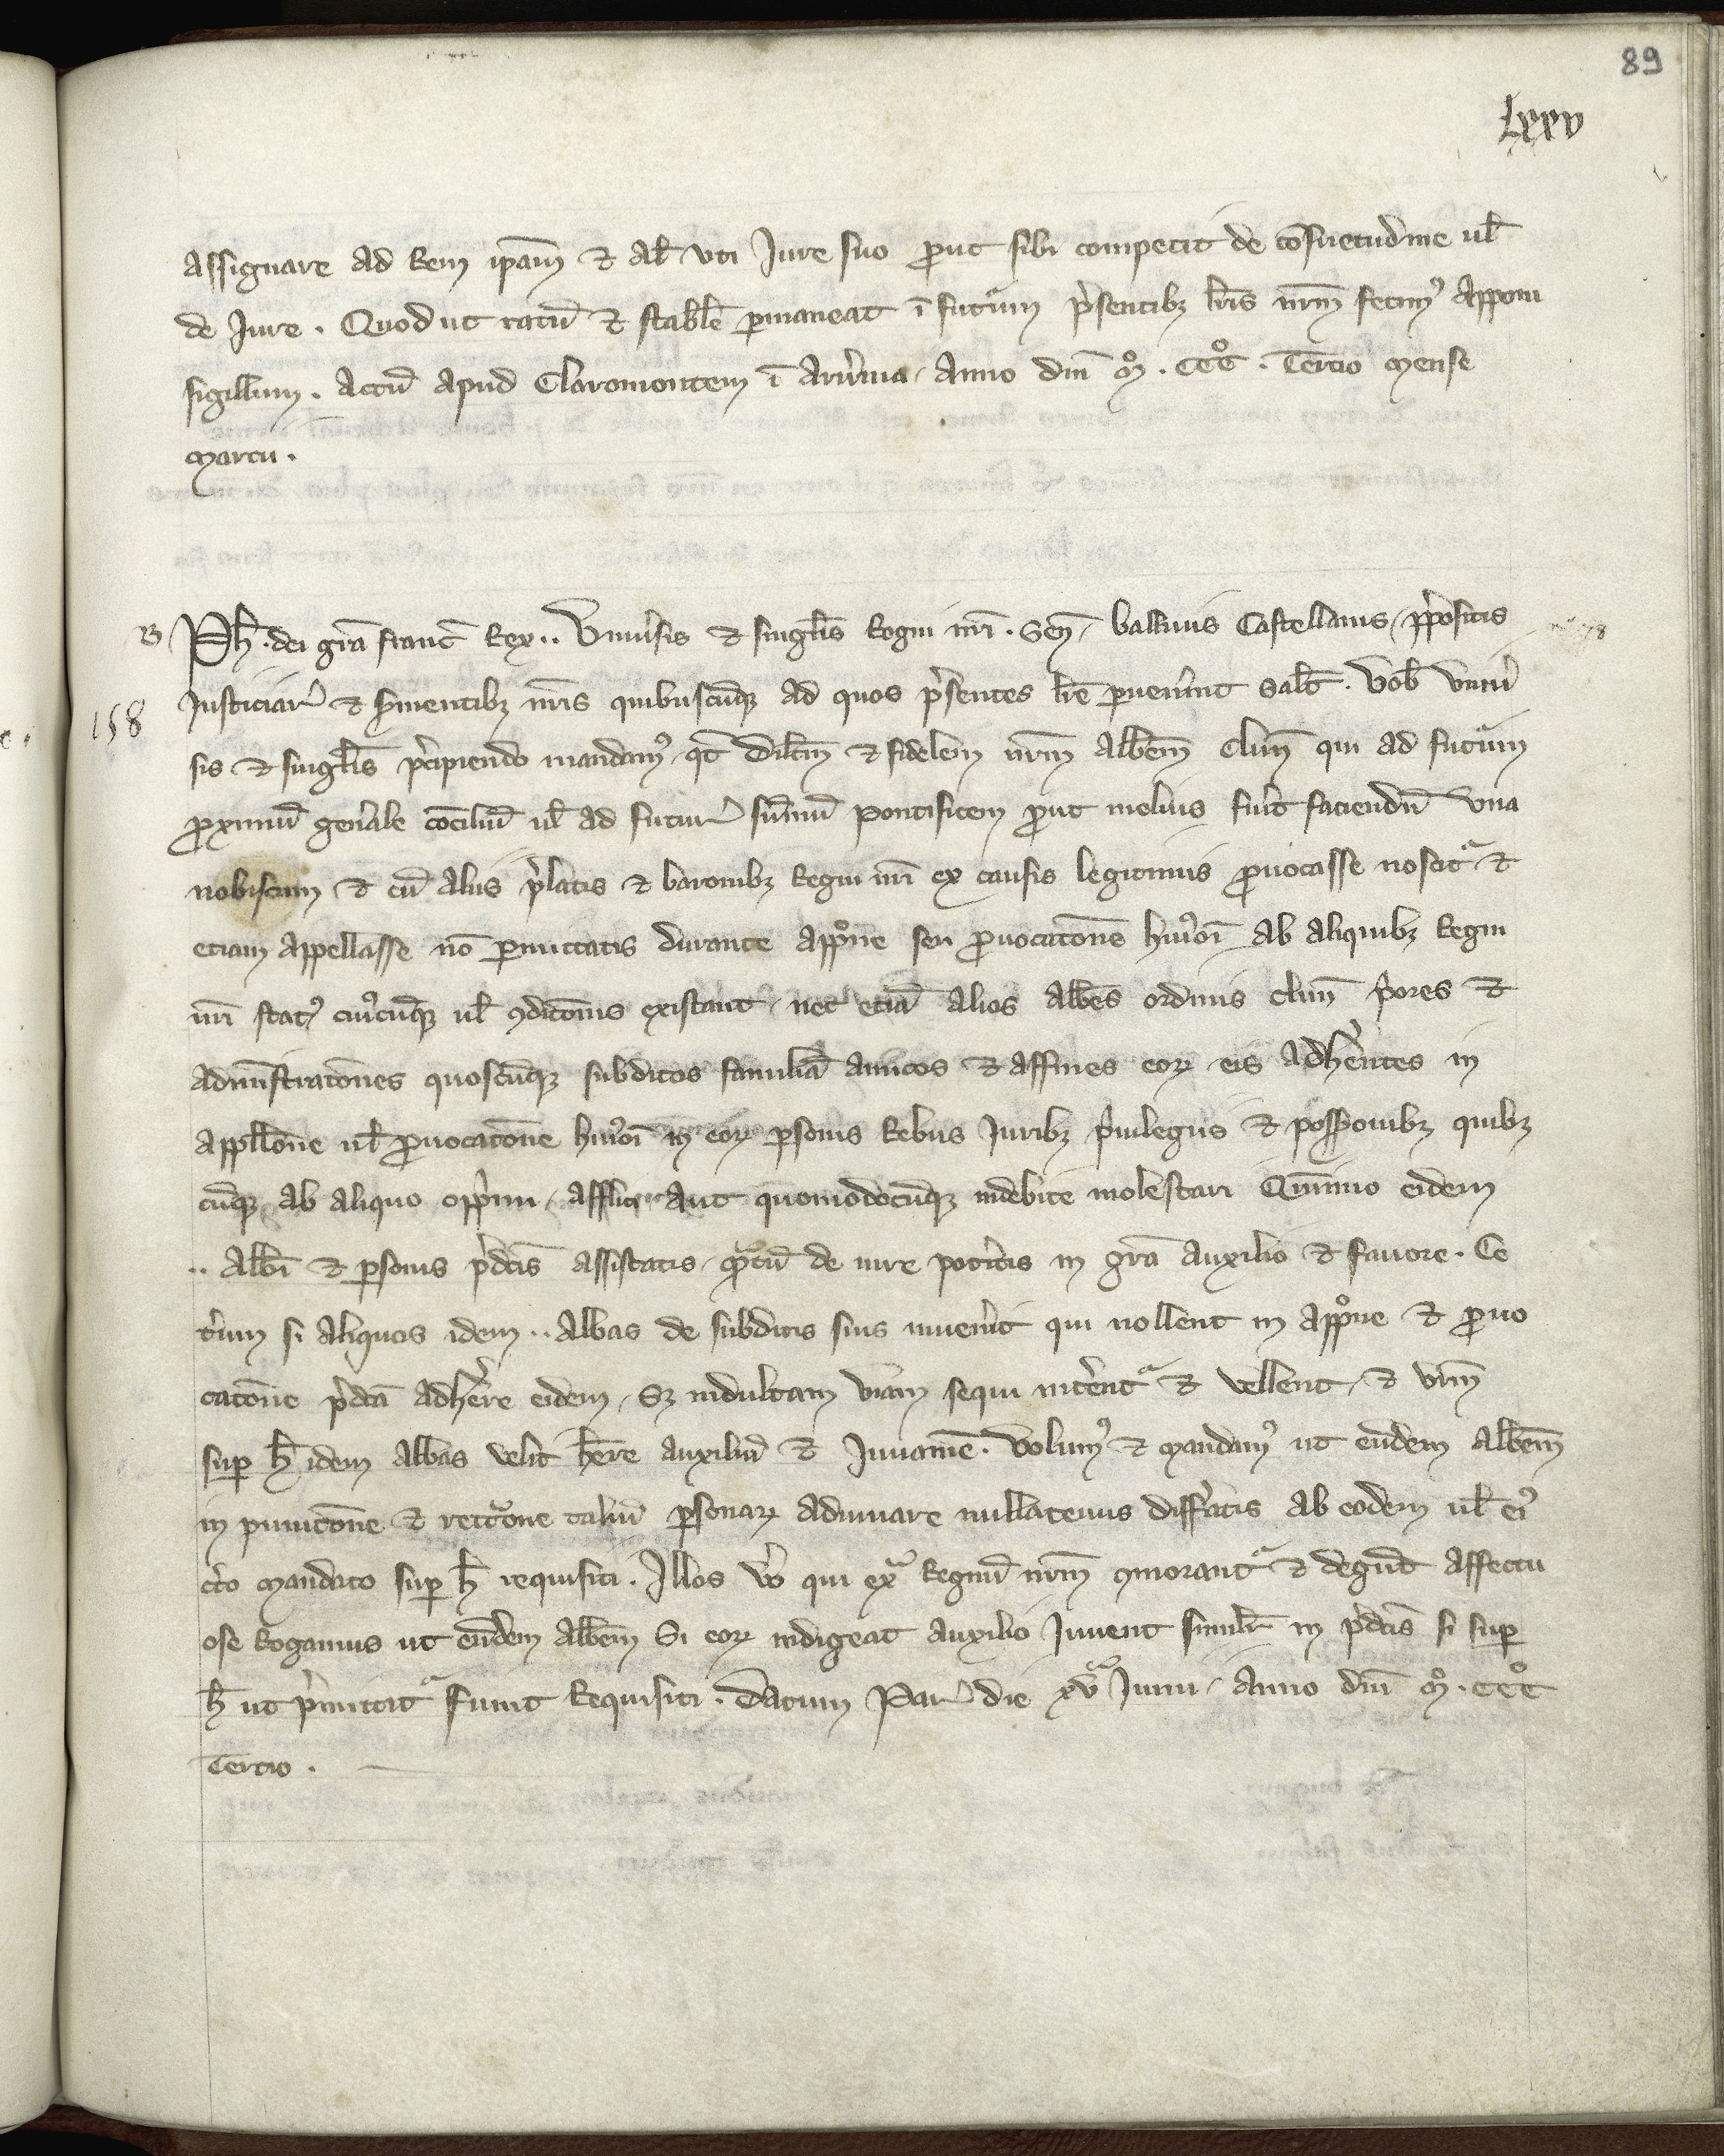 89
Lxxv
assignare ad Rem ip̄am ⁊ al̄r vti Jure suo ꝓut sibi competit de cōsuetudine ul̄
de Jure. Quod ut ratū ⁊ stabl̄e ꝑmaneat ī futurum p̄sentibꝫ lr̄is nr̄m fecimꝰ apponi
sigillum. Actū apud Claromontem ī Aruernia. Anno dn̄i mͦ. CCCͦ. Tercio mense
marcii.
B
158
Ph̄. dei gr̄a franc̄ Rex.. Vniuersis ⁊ singl̄is Regni nr̄i. Sen̄. balliuis Castellanis, p̄positis
Justiciar̄ ⁊ s̄uientibꝫ nr̄is quibuscūqꝫ ad quos p̄sentes lr̄e ꝑuenerint salt̄. Vob̄ vniuer
sis ⁊ singl̄is p̄cipiendo mandamꝰ qt̄ dilc̄m ⁊ fidelem nr̄m Abb̄em Clun̄ qui ad futurum
ꝓximū gen̄ale cōciliū ul̄ ad futur̄ sum̄ū pontificem ꝓut melius fuerit faciendū vna
nobiscum ⁊ cū aliis p̄latis ⁊ baronibꝫ Regni nr̄i ex causis legitimis ꝓuocasse noscitur ⁊
etiam appellasse nō ꝑmittatis durante appōne seu ꝓuocatōne hmōi ab aliquibꝫ Regni
nr̄i statꝰ cuiuscūqꝫ ul̄ ꝯditōnis existant, nec etiā alios Abb̄es ordinis clun̄ p̄ores ⁊
adminīstratōnes quoscūqꝫ subditos familiā amicos ⁊ affines eoꝝ eis adherentes in
appll̄one ul̄ ꝓuocatōne hmōi in eoꝝ ꝑsonis Rebus Juribꝫ p̄iuilegiis ⁊ possōnibꝫ quibꝫ
cūqꝫ ab aliquo opp̄mi, affligi aut quomodocūqꝫ indebite molestari Quinimo eidem
.. Abb̄i ⁊ ꝑsonis p̄dcīs assistatis, quantū de iure poteritis in gr̄a auxilio ⁊ fauore. Ce
terum si aliquos idem .. Abbas de subditis suis inuenerit qui nollent in appōne ⁊ ꝓuo
catōne p̄dcā adherere eidem, Sꝫ indultam viam sequi niterentur ⁊ vellent, ⁊ vr̄m
suꝑ h̄ idem Abbas velit her̄e auxiliū ⁊ Juuamē. Volumꝰ ⁊ mandamꝰ ut eūdem Abb̄em
in punitōne ⁊ rectōne taliū ꝑsonaꝝ adiuuare nullatenus differatis ab eodem ul̄ eiꝰ
certo mandato suꝑ h̄ requisiti. Illos vo qui extra Regnū nr̄m ꝯmorantur ⁊ degūt affectu
ose Rogamus ut eūdem Abb̄em Si eoꝝ indigeat auxilio Juuent similr̄ in p̄dcīs si suꝑ
h̄ ut p̄mittitur fuerint Requisiti. Datum Par̄ die xv Junii, Anno dn̄i mͦ. CCCͦ
Tercio.